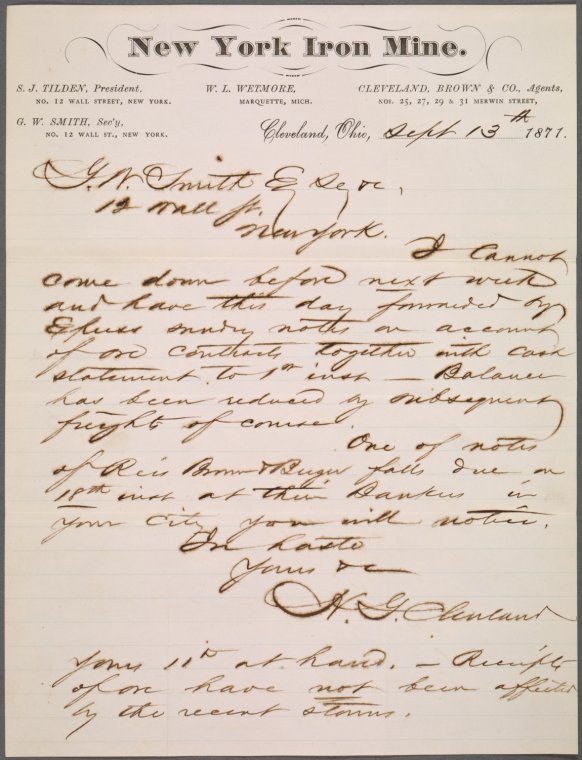 New York Iron Mine.
S. J. TILDEN, President.
NO. 12 WALL STREET, NEW YORK.
W. L. WETMORE,
MARQUETTE, MICH.
CLEVELAND, BROWN & CO., Agents,
NOS. 25, 27, 29 & 31 MERWIN STREET,
G. W. SMITH, Sec'y,
NO. 12 WALL ST., NEW YORK.
Cleveland, Ohio, Sept 13th 1871.
G. W. Smith Esq &c,
12 Wall St.
New York.
I cannot
come down before next week
and have this day forwarded by
Express sundry notes on account
of ore contracts together with cash
statement to 1st inst — Balance
has been reduced by subsequent
freight of course.
One of notes
of Reis Brown & Berger falls due on
18th inst at their Bankers in
your city you will notice.
In haste
Yours &c
H. G. Cleveland
Yours 11th at hand. — Receipts
of ore have not been affected
by the recent storms.